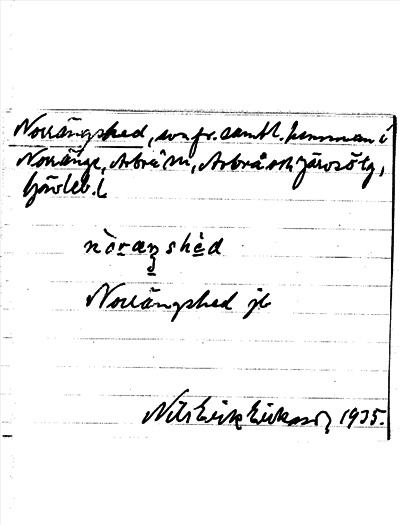 Norrängshed, som fr. samtl. hemman i
Norränge, Arbrå sn, Arbrå och Järvsö tg,
Gävleb. l
nòranshèd
Norrängshed jb
Nils Erik Eriksson, 1935.